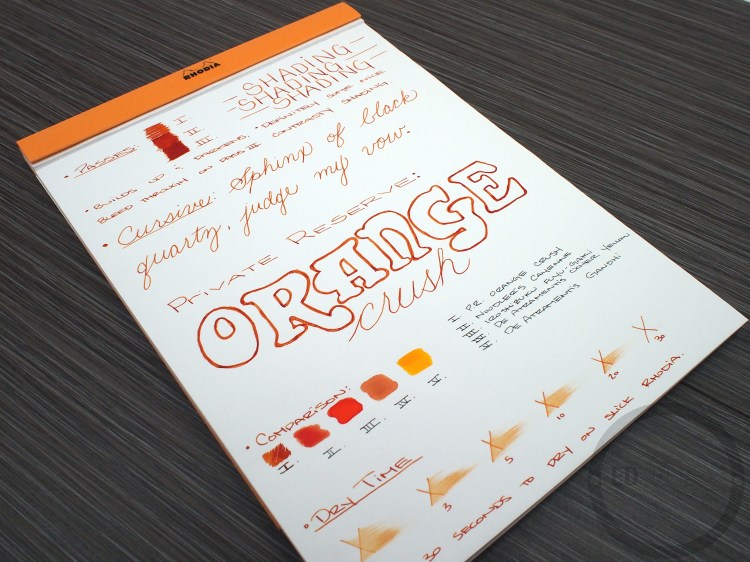 RHODIA
SHADING
SHADING
SHADING
• PASSES: I
II
III
• BUILDS UP & DARKENS, DEFINITELY SOME NICE
BLEED THROUGH ON PASS III CONTRASTY SHADING
• Cursive: Sphinx of black
quartz, judge my vow.
PRIVATE RESERVE:
ORANGE
crush
I PR ORANGE CRUSH
II NOODLER'S CAYENNE
III IROSHIZUKU FUYU-GAKI
IV DE ATRAMENTIS OCHER YELLOW
V DE ATRAMENTIS GANDHI
• COMPARISON:
I. II. III. IV. V.
• DRY TIME
3 5 10 20 30
30 SECONDS TO DRY ON SLICK RHODIA.